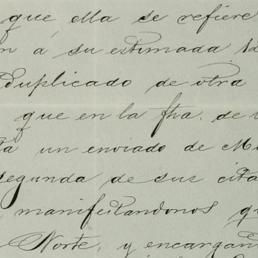 que ella se refiere
n á su estimada
duplicado de otra
que en la fha. de
ta un enviado de M
segunda de sus cita
manifestandonos q
Norte, y encargan